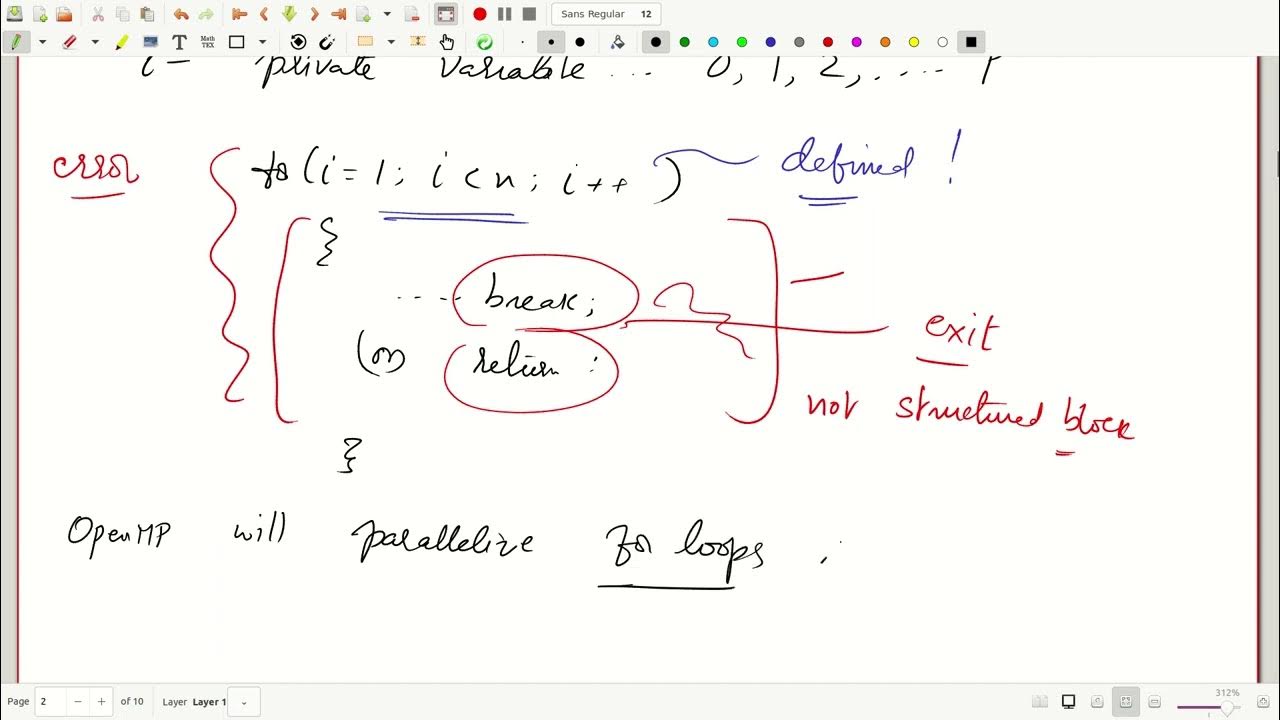 Sans Regular 12
Math TEX
i - private variable ... 0, 1, 2, ....
error for (i = 1; i < n; i++) defined !
{
..... break;
(or) return : exit
not structured block
}
OpenMP will parallelize for loops
Page 2 of 10 Layer Layer 1 312%